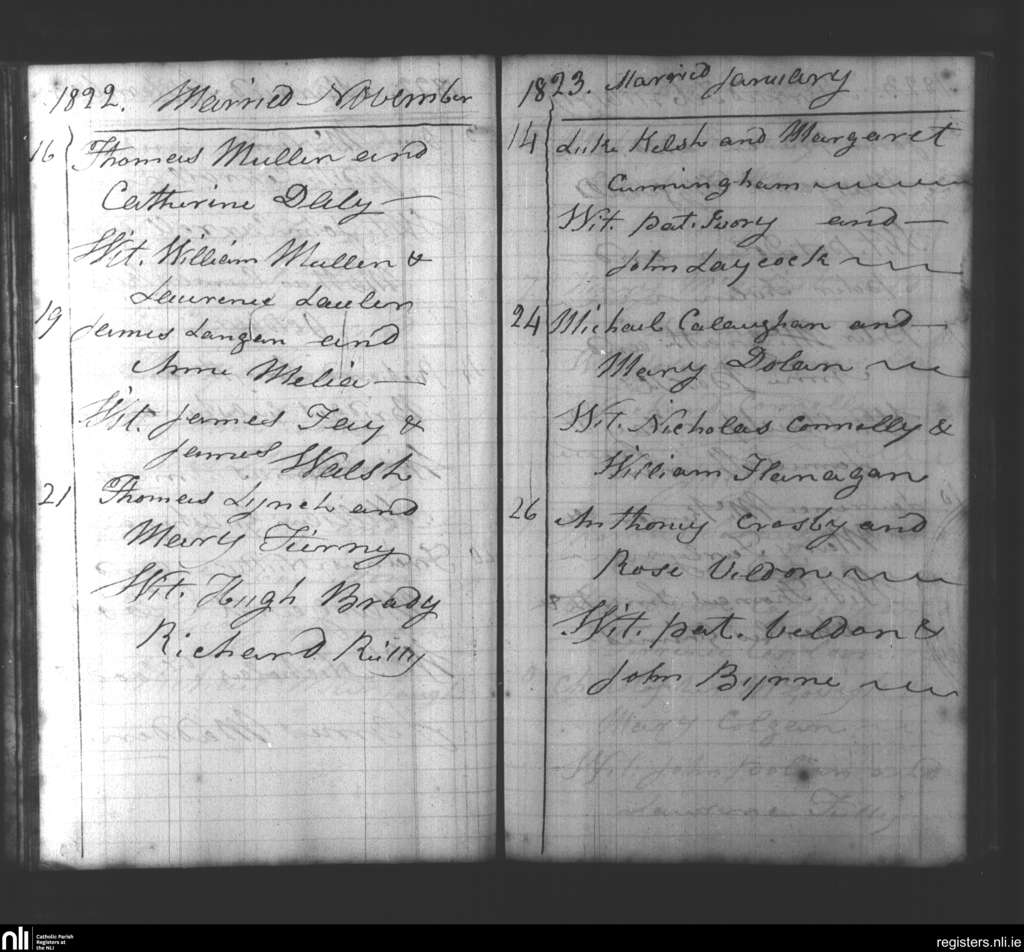 1822. Married November
16 Thomas Mullin and
Catherine Daly
Wit. William Mullen &
Laurence Lawler
19 James Langan and
Anne Melia
Wit. James Fay &
James Walsh
21 Thomas Lynch and
Mary Tierny
Wit. Hugh Brady
Richard Reilly
1823. Married January
14 Luke Kelsh and Margaret
Cunningham
Wit. pat. Ivory and
John Laycock
24 Michael Calaughan and
Mary Dolan
Wit. Nicholas Connolly &
William Flanagan
26 Anthony Crosby and
Rose Veldon
Wit. pat. Veldon &
John Byrne
Mary
Wit. John and
nli Catholic Parish
Registers at
the NLI
registers.nli.ie